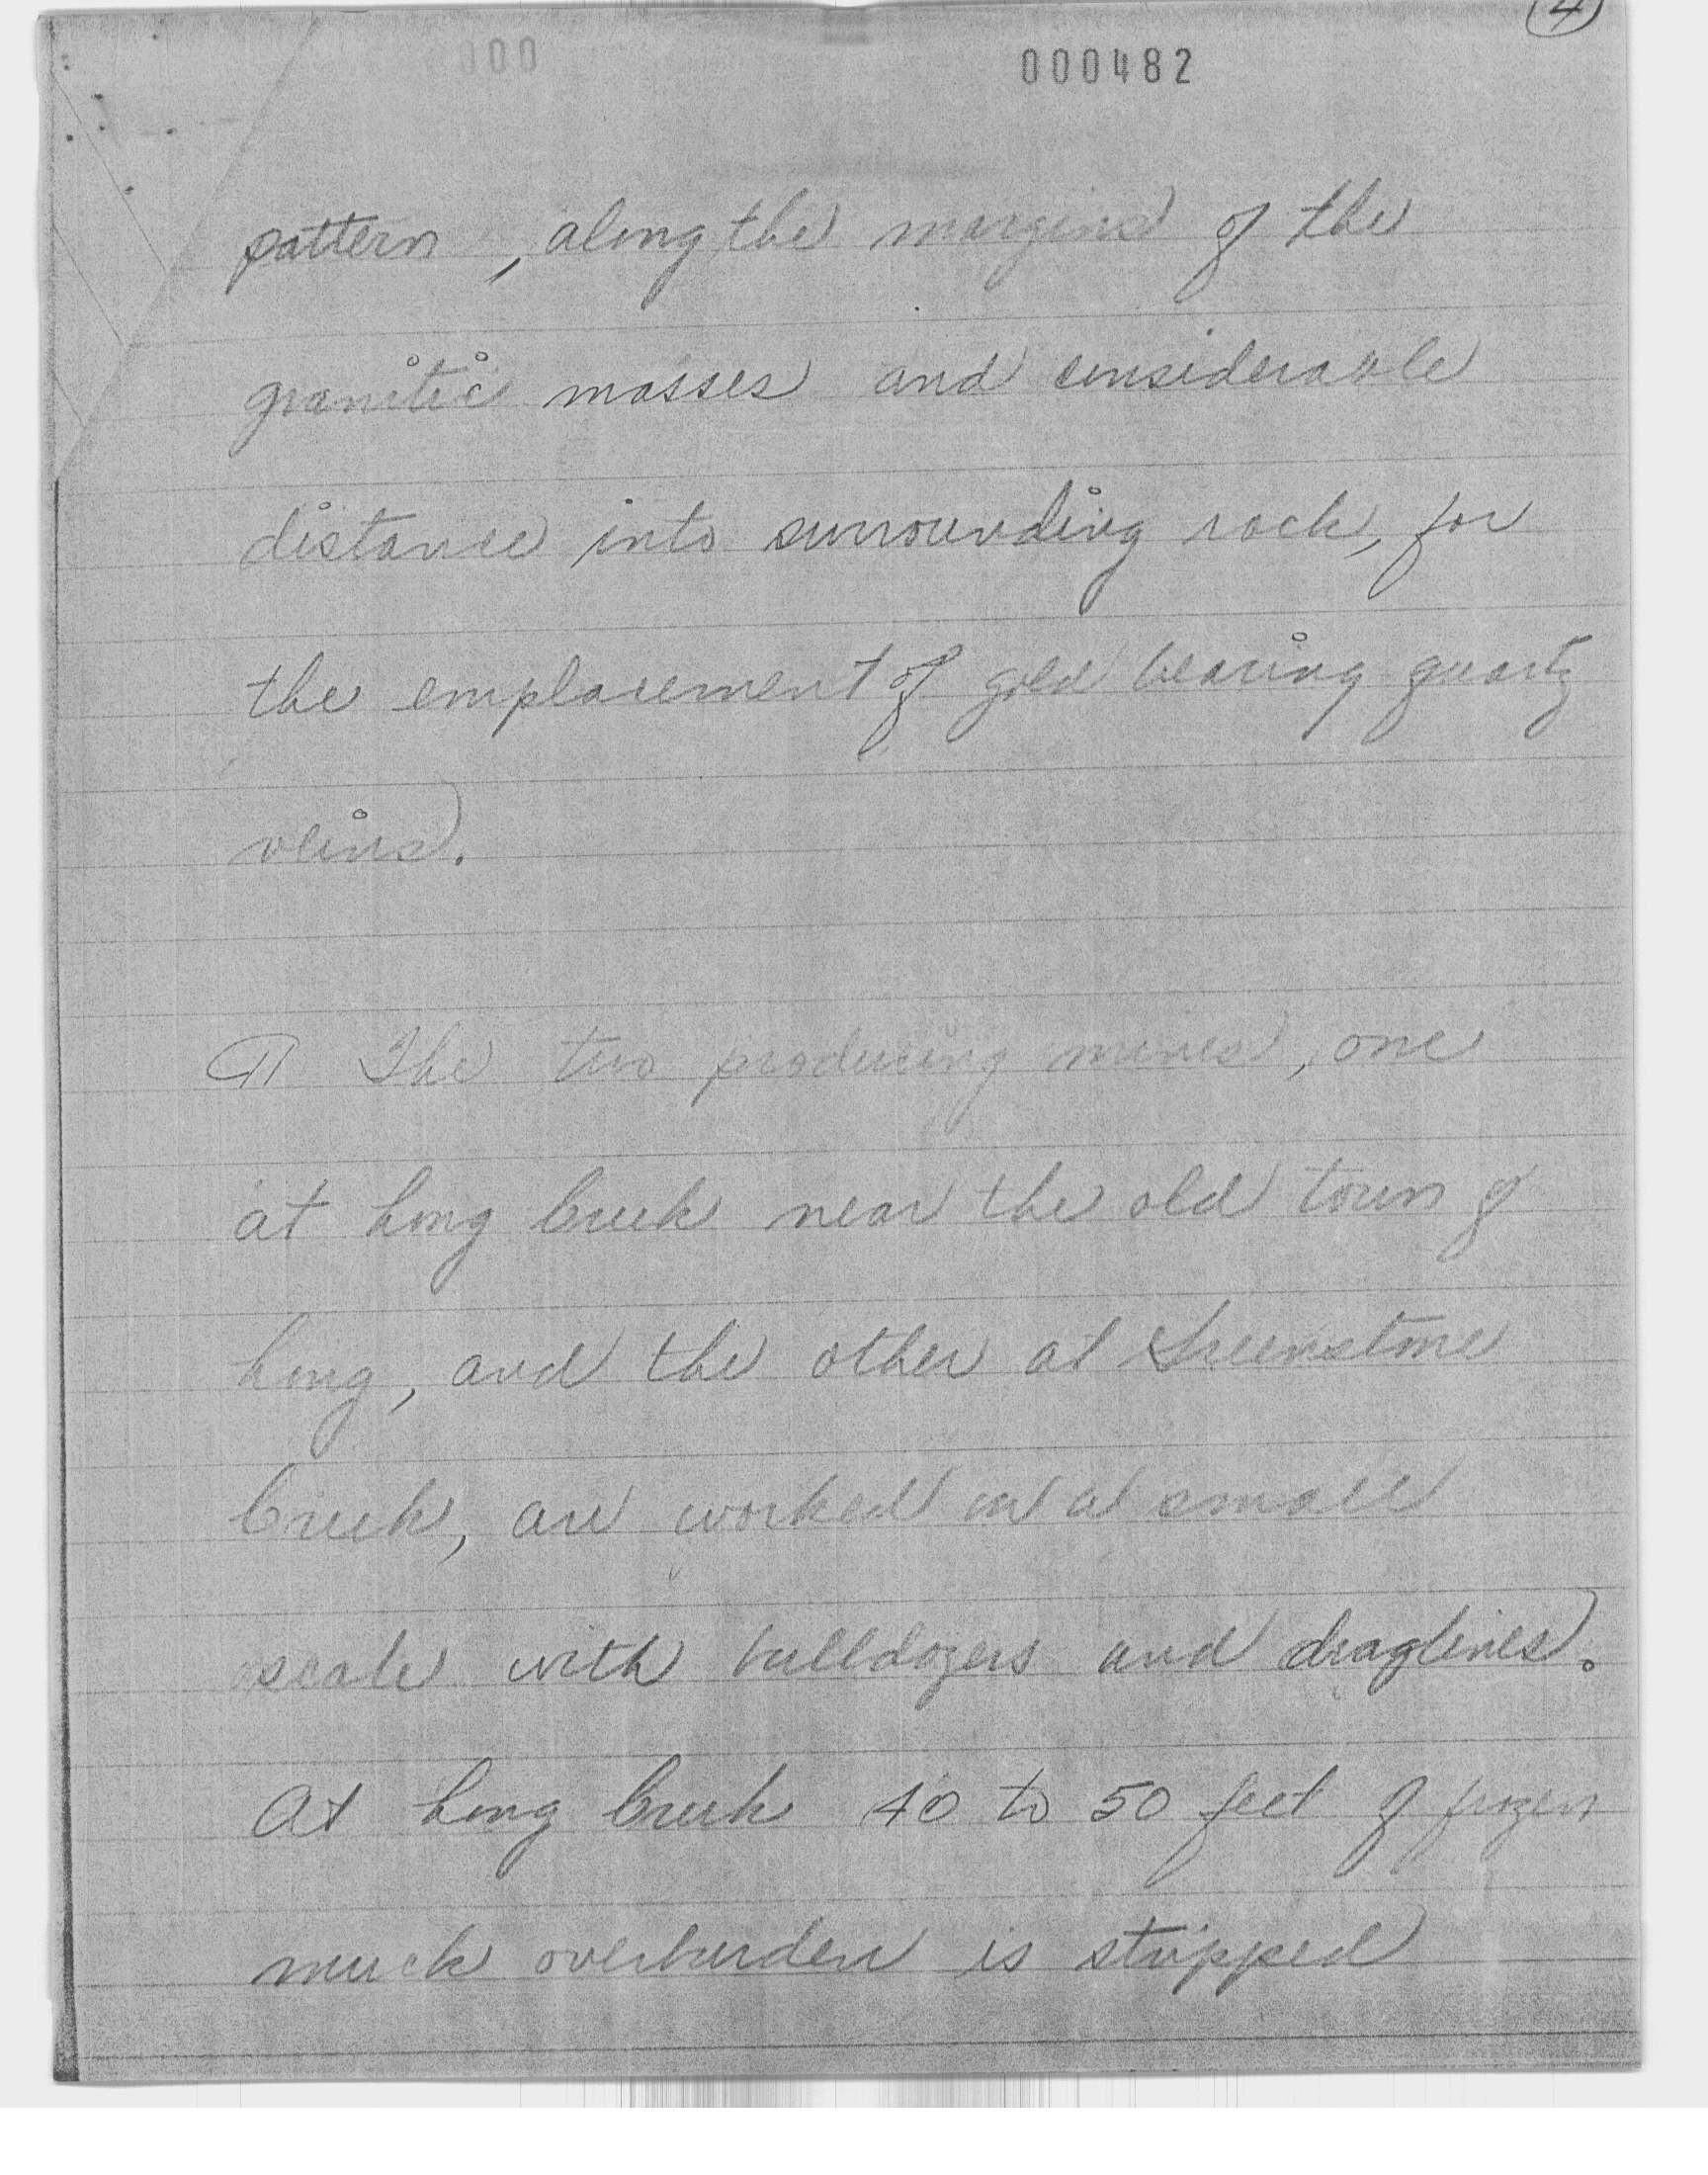 4
000
000482
pattern, along the margins of the
granitic masses and considerable
distance into surrounding rock, for
the emplacement of gold bearing quartz
veins.
¶ The two producing mines, one
at Long Creek near the old town of
Long, and the other at Greenstone
Creek, are worked on a small
scale with bulldozers and draglines.
At Long Creek 40 to 50 feet of frozen
muck overburden is stripped